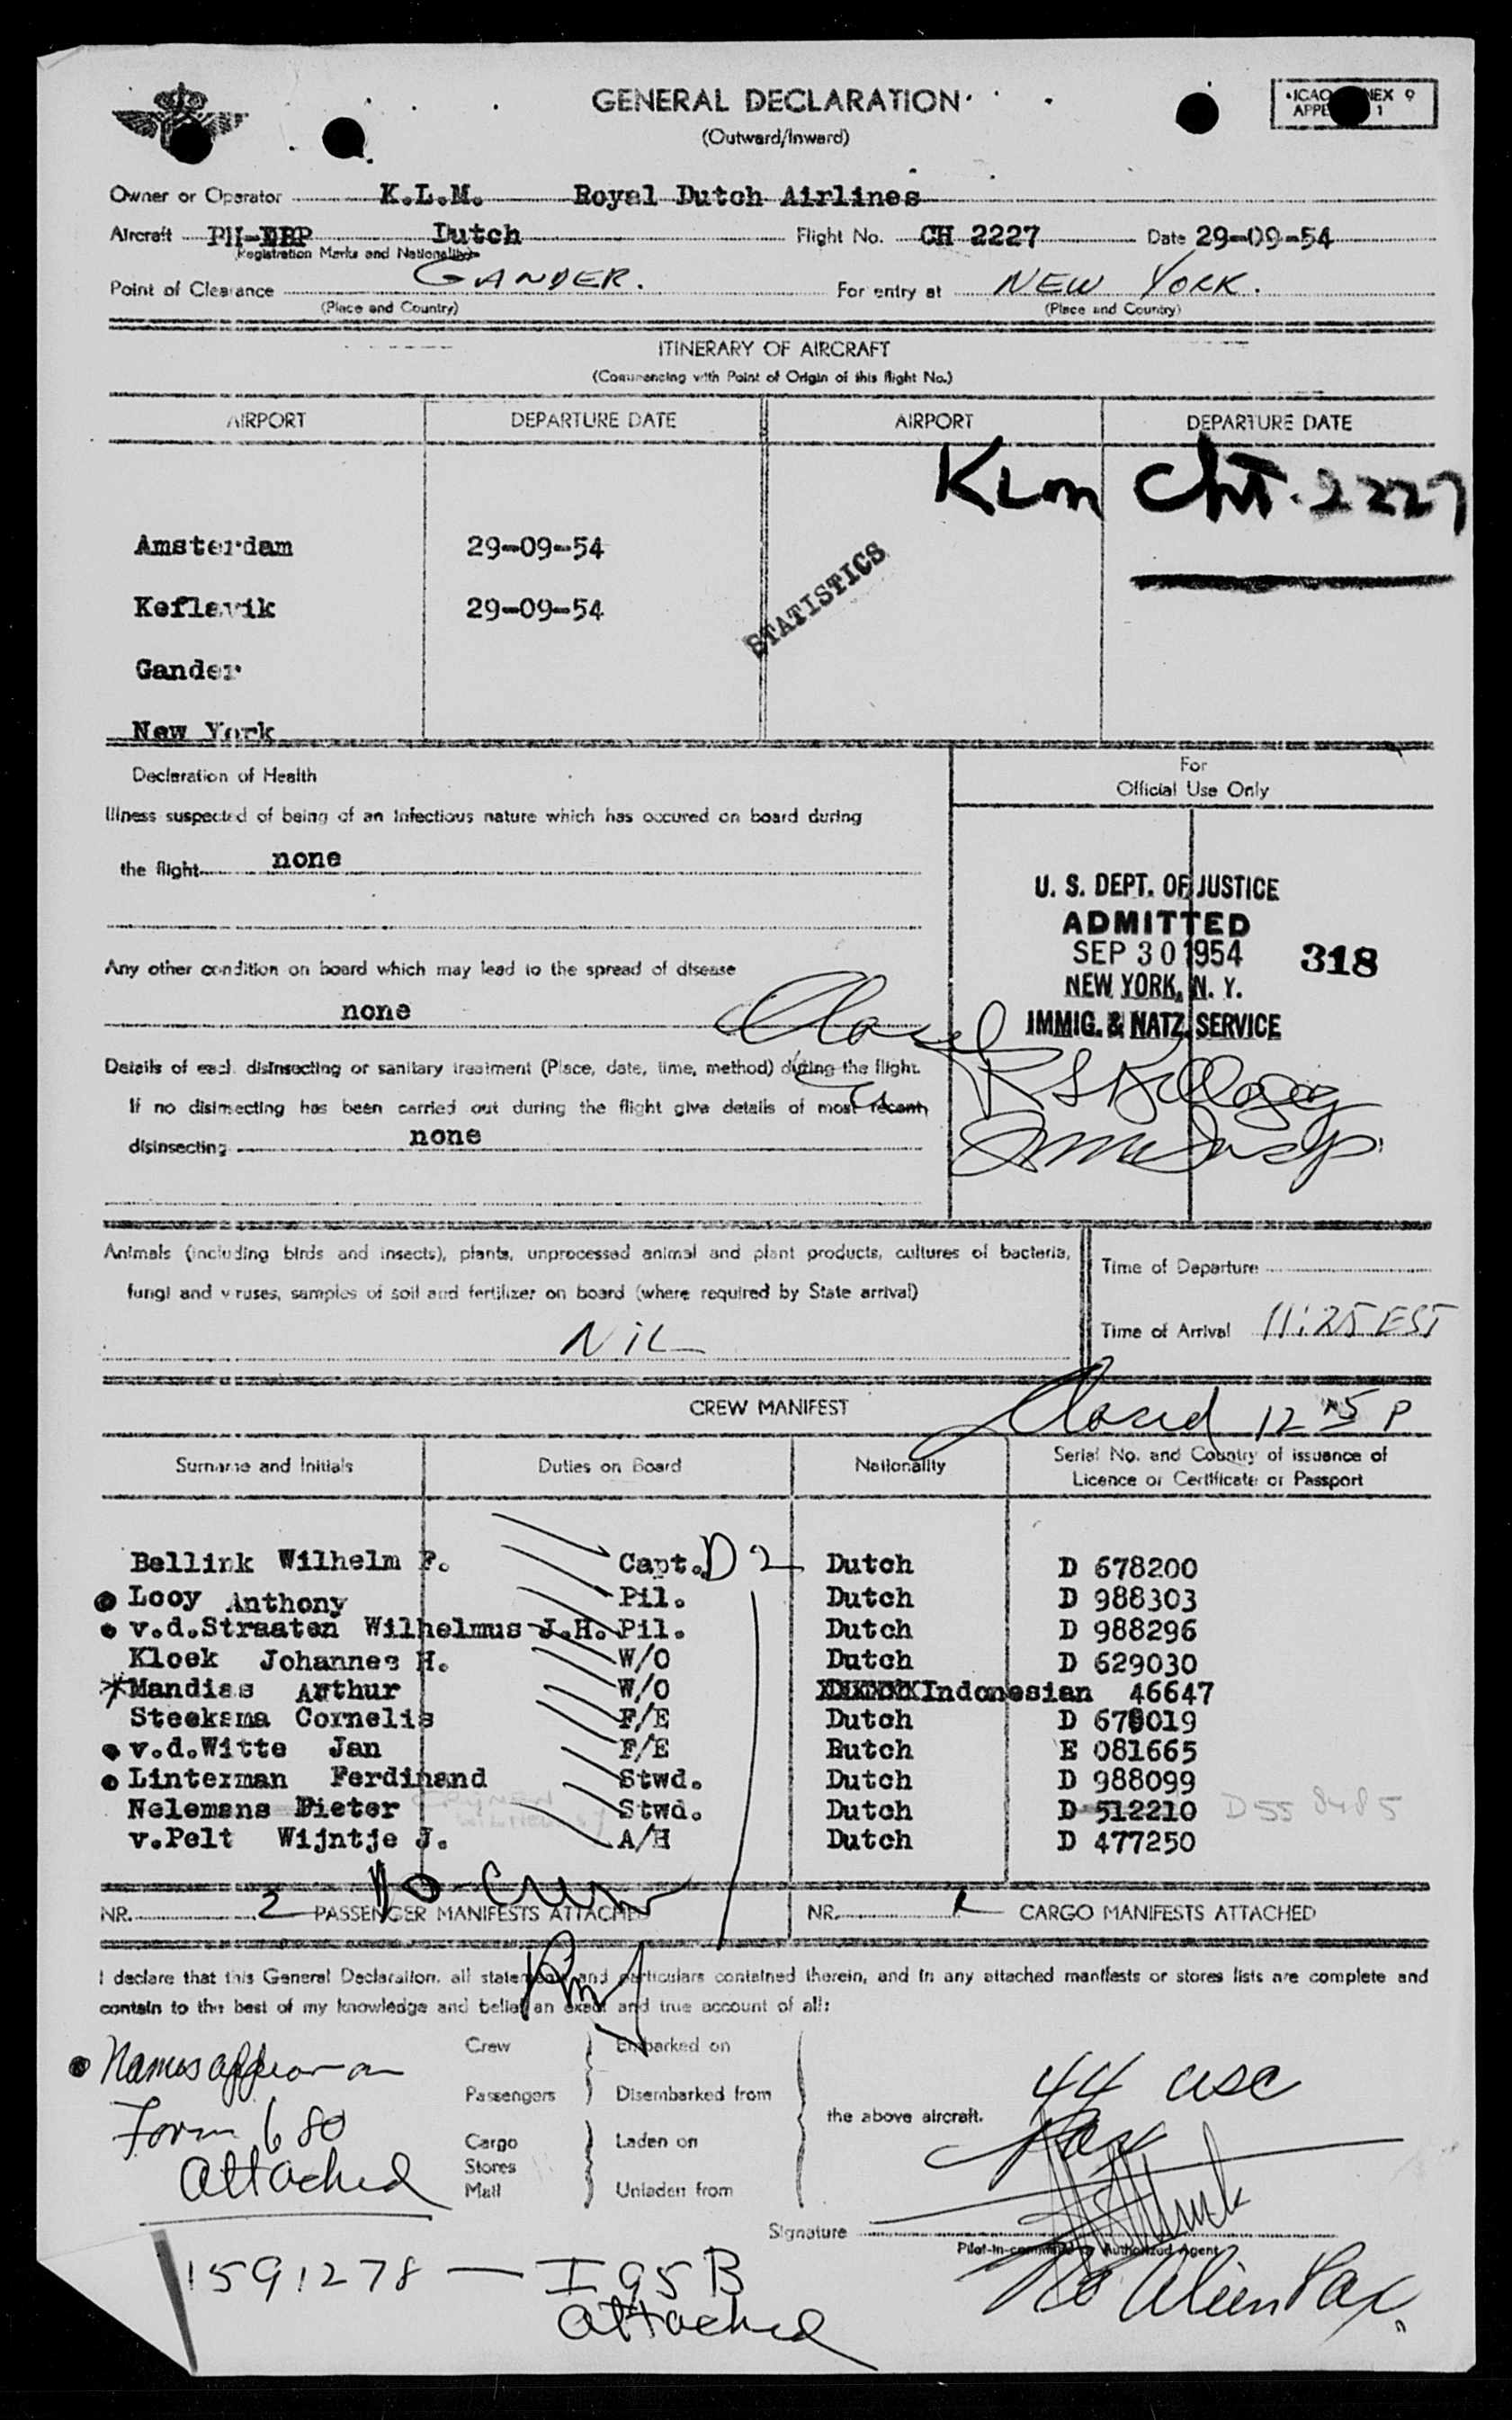 GENERAL DECLARATION
(Outward/Inward)
ICAO ANNEX 9
APPENDIX 1
Owner or Operator K.L.M. Royal Dutch Airlines
Aircraft Dutch Flight No. CH 2227 Date 29-09-54
(Registration Marks and Nationality)
Point of Clearance GANDER. For entry at NEW YORK.
(Place and Country) (Place and Country)
ITINERARY OF AIRCRAFT
(Commencing with Point of Origin of this flight No.)
AIRPORT DEPARTURE DATE AIRPORT DEPARTURE DATE
KLM Cht. 2227
Amsterdam 29-09-54
STATISTICS
Keflavik 29-09-54
Gander
New York
Declaration of Health
For
Official Use Only
Illness suspected of being of an infectious nature which has occured on board during
the flight none
U. S. DEPT. OF JUSTICE
ADMITTED
SEP 30 1954 318
NEW YORK, N. Y.
IMMIG. & NATZ. SERVICE
Any other condition on board which may lead to the spread of disease
none
Closed
Details of each disinsecting or sanitary treatment (Place, date, time, method) during the flight.
If no disinsecting has been carried out during the flight give details of most recent
disinsecting none
Imm Insp.
Animals (including birds and insects), plants, unprocessed animal and plant products, cultures of bacteria,
fungi and viruses, samples of soil and fertilizer on board (where required by State arrival)
NiL
Time of Departure
Time of Arrival 11:25 EST
CREW MANIFEST
Closed 12 15 P
Surname and Initials Duties on Board Nationality Serial No. and Country of issuance of
Licence or Certificate or Passport
Bellink Wilhelm F. Capt. D2 Dutch D 678200
Looy Anthony Pil. Dutch D 988303
v.d.Straaten Wilhelmus J.H. Pil. Dutch D 988296
Kloek Johannes H. W/O Dutch D 629030
*Mandias Arthur W/O Indonesian 46647
Steeksma Cornelis F/E Dutch D 678019
v.d.Witte Jan F/E Dutch E 081665
Linterman Ferdinand Stwd. Dutch D 988099
Nelemans Pieter Stwd. Dutch D 512210 D558485
v.Pelt Wijntje J. A/H Dutch D 477250
10-Crew
NR. 2 PASSENGER MANIFESTS ATTACHED NR. 1 CARGO MANIFESTS ATTACHED
I declare that this General Declaration, all statements and particulars contained therein, and in any attached manifests or stores lists are complete and
contain to the best of my knowledge and belief an exact and true account of all:
Crew Embarked on
Passengers Disembarked from
the above aircraft.
Cargo Laden on
Stores
Mail Unladen from
Names appear on
Form 680
attached
44 USC
Pax
Signature
Pilot-in-command or Authorized Agent
No Alien Pax.
1591278 — I 95 B
attached